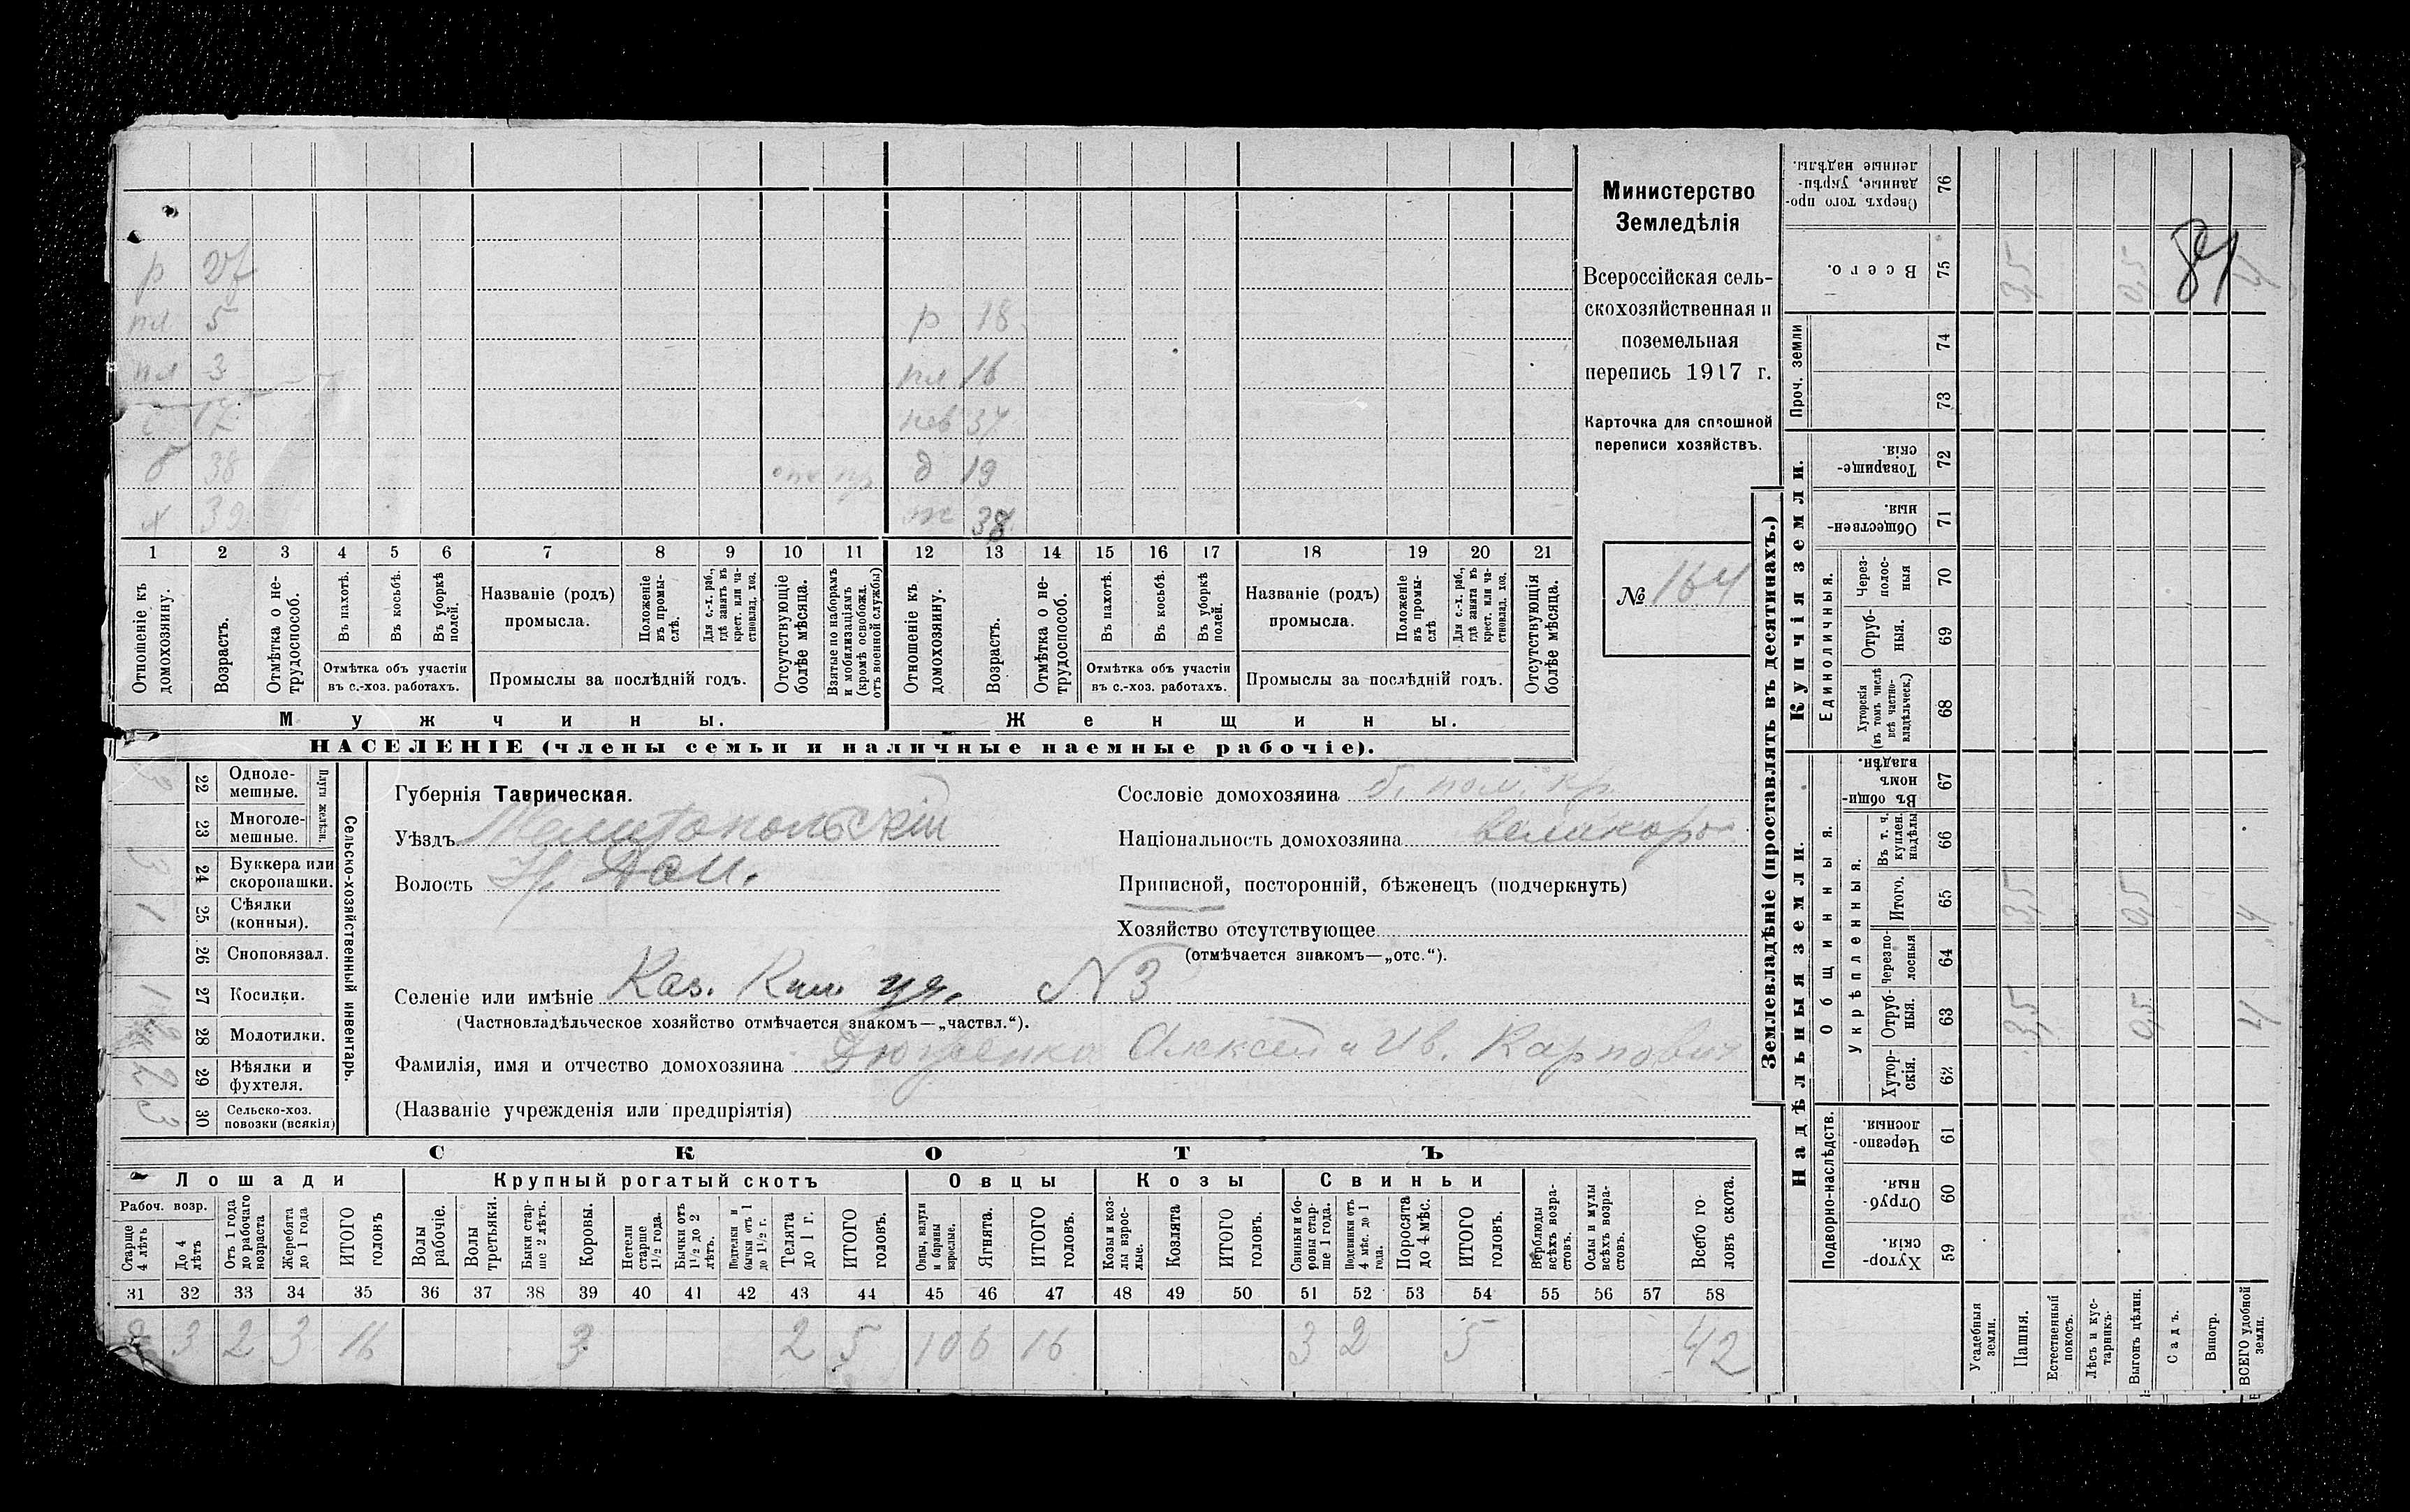 Министерство
Земледѣлія
Всероссійская сель-
скохозяйственная и
поземельная
перепись 1917 г.
Карточка для сплошной
переписи хозяйствъ.
№ 164
81
р 18
пл 5
пл 3
пл 16
17
нев 37
б 38
д 19
х 39
ж 38
1 2 3 4 5 6 7 8 9 10 11 12 13 14 15 16 17 18 19 20 21
Отношеніе къ домохозяину.
Возрастъ.
Отмѣтка о не-трудоспособ.
Въ пахотѣ.
Въ косьбѣ.
Въ уборкѣ полей.
Отмѣтка объ участіи въ с.-хоз. работахъ.
Названіе (родъ) промысла.
Положеніе въ промы-слѣ.
Для с.-х. раб., гдѣ занятъ въ крест. или ча-стновлад. хоз.
Промыслы за послѣдній годъ.
Отсутствующіе болѣе мѣсяца.
Взятые по наборамъ и мобилизаціямъ (кромѣ освобожд. отъ военной службы)
Отношеніе къ домохозяину.
Возрастъ.
Отмѣтка о не-трудоспособ.
Въ пахотѣ.
Въ косьбѣ.
Въ уборкѣ полей.
Отмѣтка объ участіи въ с.-хоз. работахъ.
Названіе (родъ) промысла.
Положеніе въ промы-слѣ
Для с.-х. раб., гдѣ занята въ крест. или ча-стновлад. хоз.
Промыслы за послѣдній годъ.
Отсутствующія болѣе мѣсяца.
Мужчины.
Женщины.
НАСЕЛЕНІЕ (члены семьи и наличные наемные рабочіе).
Сельско-хозяйственный инвентарь.
Плуги желѣзн.
22 Одноле-мешные.
23 Многоле-мешные.
24 Буккера или скоропашки. 3
25 Сѣялки (конныя). 1
26 Сноповязал.
27 Косилки. 1
28 Молотилки.
29 Вѣялки и фухтеля.
30 Сельско-хоз. повозки (всякія) 3
Губернія Таврическая.
Уѣздъ Мелитопольскій
Волость
Сословіе домохозяина б. пом. кр.
Національность домохозяина великорос
Приписной, посторонній, бѣженецъ (подчеркнуть)
Хозяйство отсутствующее
(отмѣчается знакомъ—„отс.“).
Селеніе или имѣніе Каз. № 3
(Частновладѣльческое хозяйство отмѣчается знакомъ—„частвл.“).
Фамилія, имя и отчество домохозяина Алексѣй и Ив. Карпович
(Названіе учрежденія или предпріятія)
СКОТЪ
Лошади
Крупный рогатый скотъ
Овцы
Козы
Свиньи
Рабоч. возр.
Старше 4 лѣтъ
До 4 лѣтъ
Отъ 1 года до рабочаго возраста
Жеребята до 1 года
ИТОГО головъ
Волы рабочіе.
Волы третьяки.
Быки стар-ше 2 лѣтъ.
Коровы.
Нетели старше 1½ года.
Бычки отъ 1½ до 2 лѣтъ.
Подтелки и бычки отъ 1 до 1½ г.
Телята до 1 г.
ИТОГО головъ.
Овцы, валухи и бараны взрослые.
Ягнята.
ИТОГО головъ.
Козы и коз-лы взрос-лые.
Козлята
ИТОГО головъ.
Свиньи и бо-ровы стар-ше 1 года.
Подсвинки отъ 4 мѣс. до 1 года.
Поросята до 4 мѣс.
ИТОГО головъ.
Верблюды всѣхъ возра-стовъ.
Ослы и мулы всѣхъ возра-стовъ.
Всего го-ловъ скота.
31 32 33 34 35 36 37 38 39 40 41 42 43 44 45 46 47 48 49 50 51 52 53 54 55 56 57 58
8 3 2 3 16 3 2 5 10 6 16 3 2 5 42
Землевладѣніе (проставлять въ десятинахъ.)
Надѣльныя земли.
Купчія земли.
Проч. земли
Подворно-наслѣдств.
Общинныя.
Укрѣпленныя.
Единоличныя.
Сверхъ того про-данные, укрѣп-ленные надѣлы. 76
Всего. 75 3,5 0,5 4
74
73
Товарище-скія. 72
Обществен-ныя. 71
Через-полос-ныя 70
Отруб-ныя. 69
Хуторскія (въ томъ числѣ всѣ частно-владѣльческ.) 68
Въ общин-номъ владѣн. 67
Въ т. ч. куплен. надѣлы 66
Итого. 65 3,5 0,5 4
Черезпо-лосныя 64
Отруб-ныя. 63 3,5 0,5 4
Хутор-скія. 62
Черезпо-лосныя. 61
Отруб-ныя. 60
Хутор-скія. 59
Усадебныя земли.
Пашня.
Естественный покосъ.
Лѣсъ и кус-тарникъ.
Выгонъ цѣлин.
Садъ.
Виногр.
ВСЕГО удобной земли.